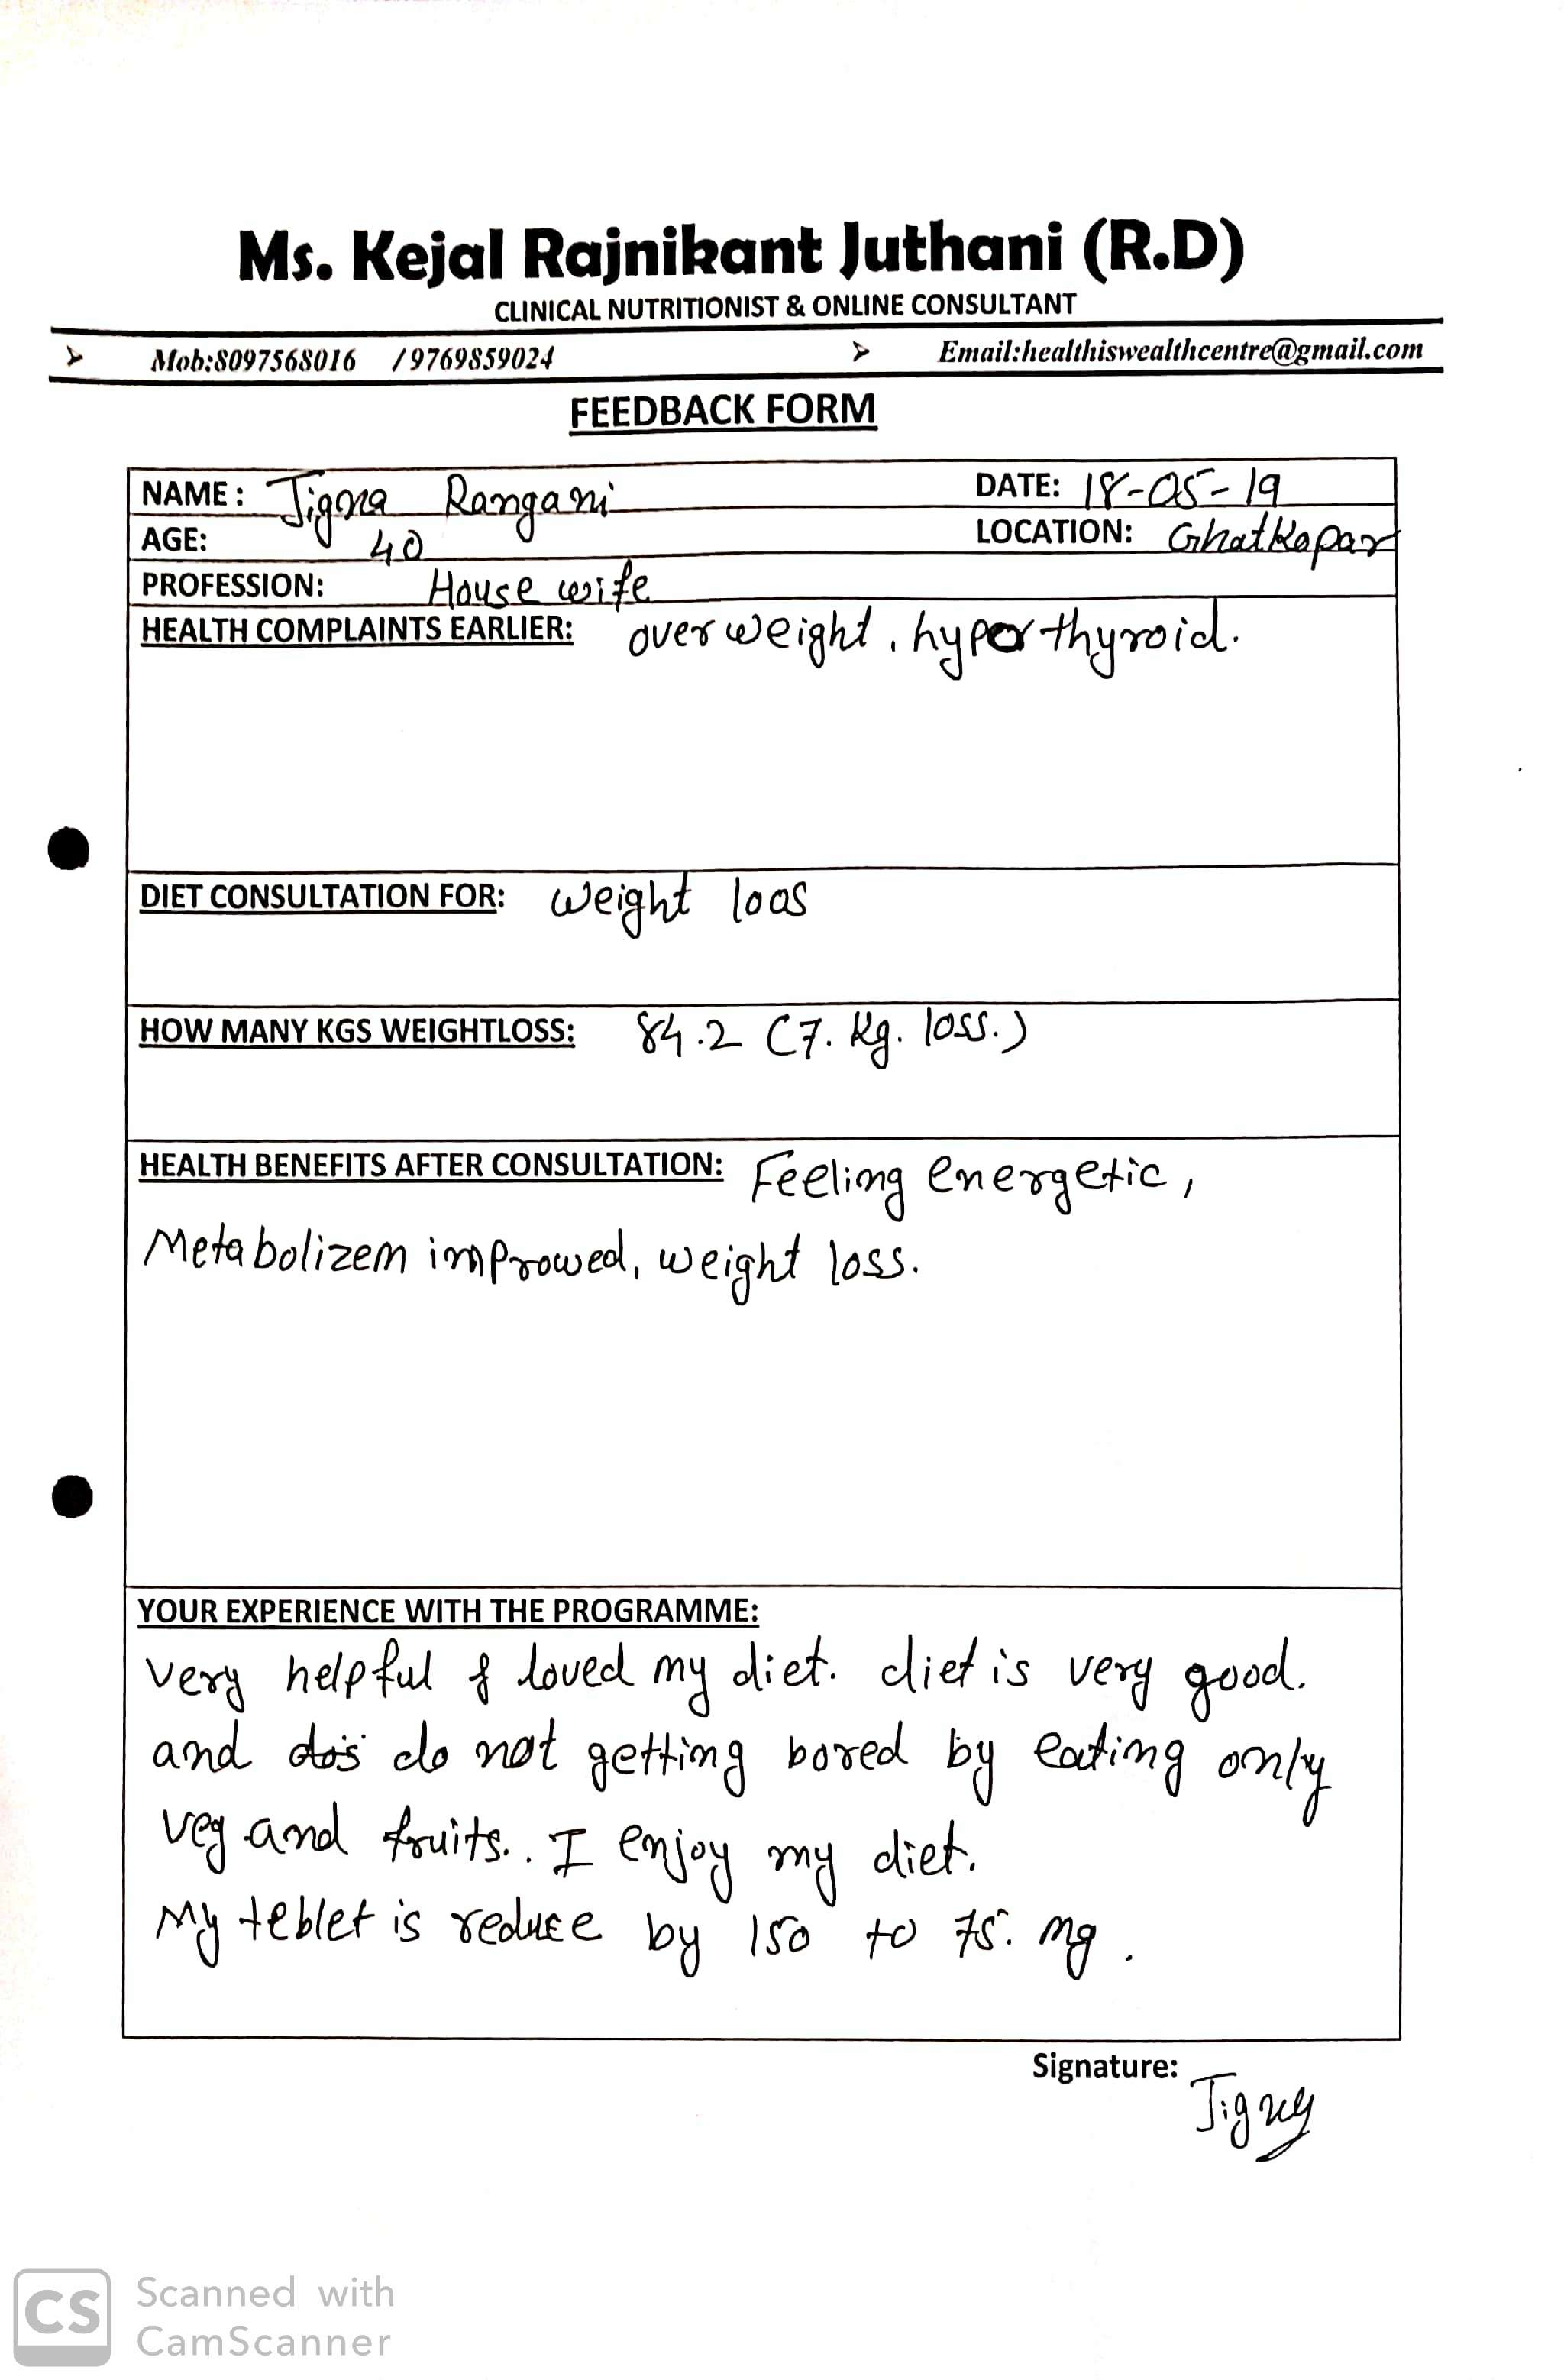 Ms. Kejal Rajnikant Juthani (R.D)
CLINICAL NUTRITIONIST & ONLINE CONSULTANT
➢ Mob:8097568016 / 9769859024 ➢ Email:healthiswealthcentre@gmail.com
FEEDBACK FORM
NAME: Jigna Rangani DATE: 18-05-19
AGE: 40 LOCATION: Ghatkopar
PROFESSION: House wife
HEALTH COMPLAINTS EARLIER: over weight, hyperthyroid.
DIET CONSULTATION FOR: weight loos
HOW MANY KGS WEIGHTLOSS: 84.2 (7. kg. loss.)
HEALTH BENEFITS AFTER CONSULTATION: Feeling energetic,
Metabolizem improwed, weight loss.
YOUR EXPERIENCE WITH THE PROGRAMME:
very helpful & loved my diet. diet is very good.
and do not getting bored by eating only
veg and fruits.. I enjoy my diet.
My teblet is reduce by 150 to 75. mg.
Signature:
Jigna
CS Scanned with
CamScanner